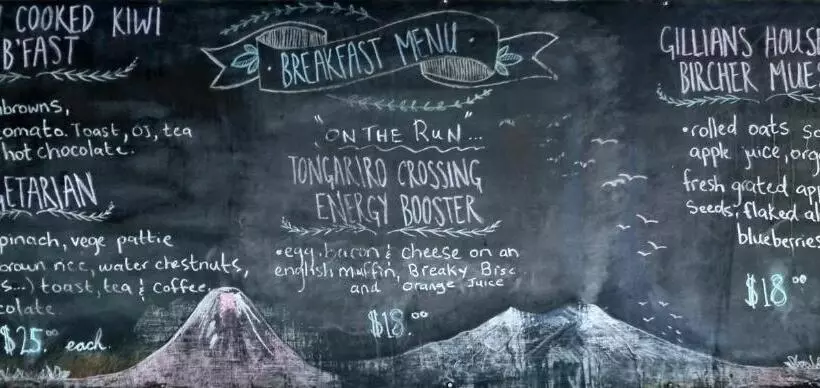 COOKED KIWI
B'FAST
browns,
omato. Toast, OJ, tea
hot chocolate.
GETARIAN
pinach, vege pattie
brown rice, water chestnuts,
s...) toast, tea & coffee
colate.
$25.00 each.
BREAKFAST MENU
"ON THE RUN"...
TONGARIRO CROSSING
ENERGY BOOSTER
•egg, bacon & cheese on an
english muffin, Breaky Bisc
and orange Juice
$18.00
GILLIANS HOUSE
BIRCHER MUES
•rolled oats so
apple juice, org
fresh grated app
Seeds, flaked al
blueberries
$18.00